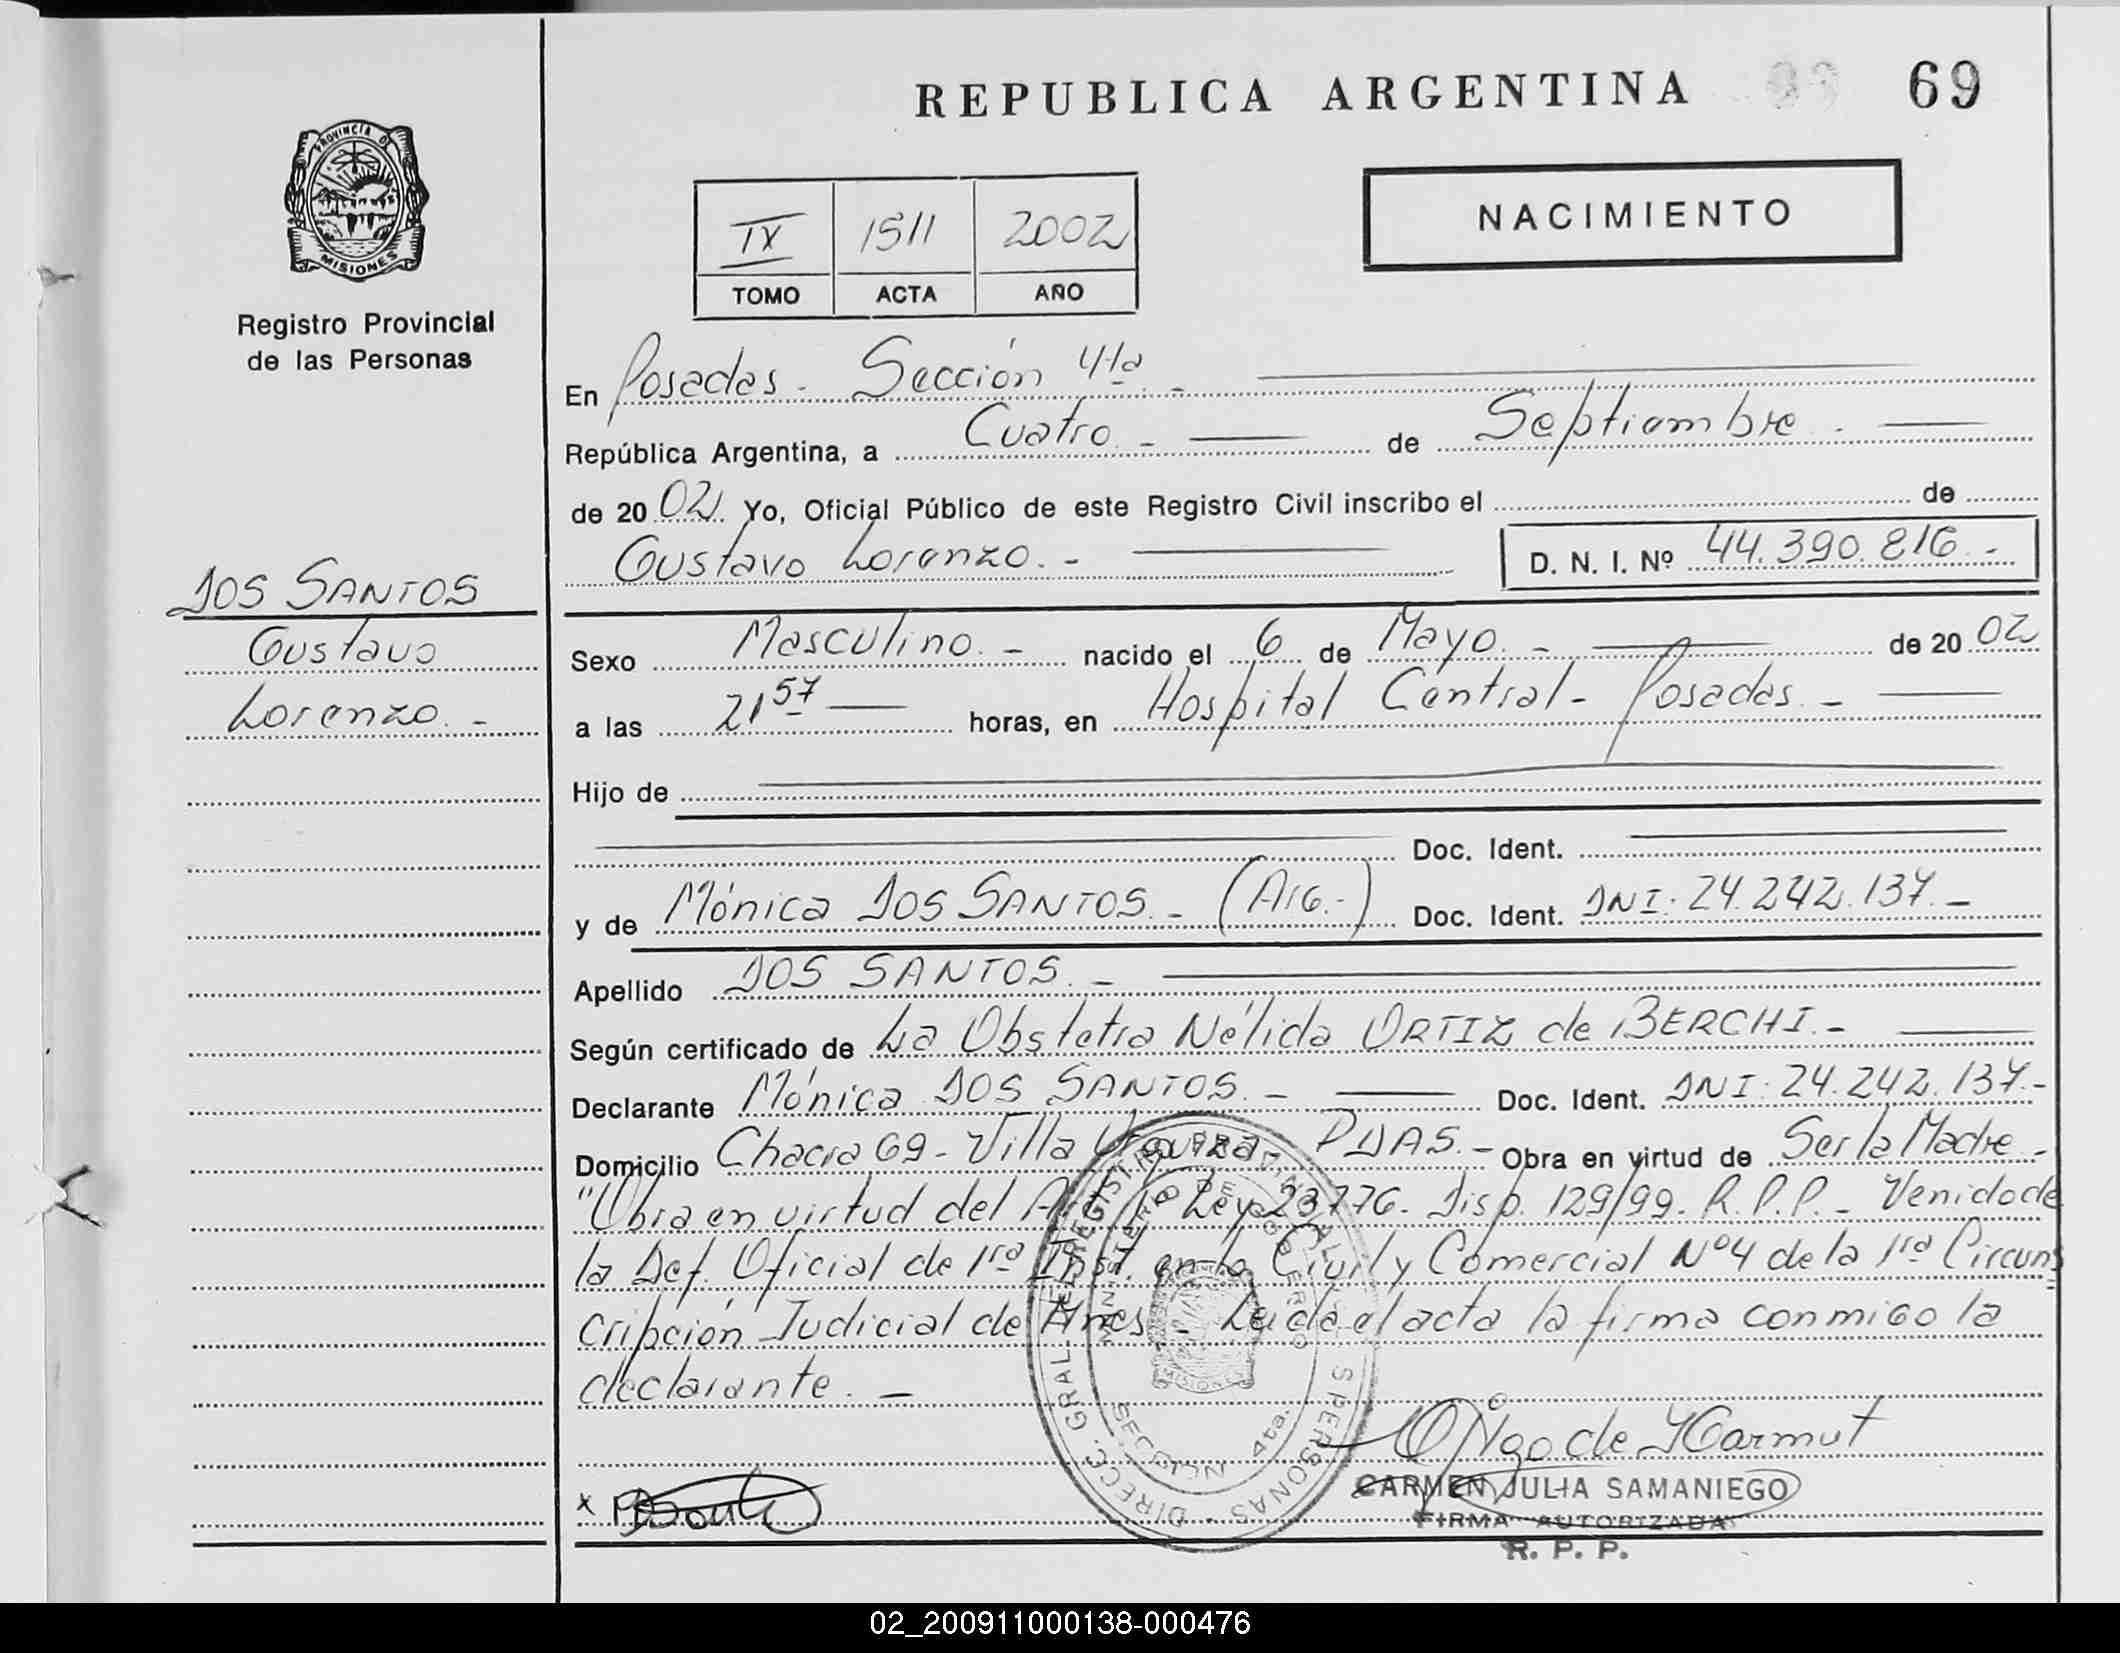 REPUBLICA ARGENTINA 69
PROVINCIA DE
MISIONES
Registro Provincial
de las Personas
NACIMIENTO
IX 1511 2002
TOMO ACTA AÑO
En Posadas - Sección 4ta -
República Argentina, a Cuatro - de Septiembre -
de 20 02 Yo, Oficial Público de este Registro Civil inscribo el de
Gustavo Lorenzo. - D. N. I. Nº 44.390.816 -
DOS SANTOS
Gustavo
Lorenzo. -
Sexo Masculino. - nacido el 6 de Mayo. - de 20 02
a las 21 57 horas, en Hospital Central - Posadas. -
Hijo de
Doc. Ident.
y de Mónica DOS SANTOS. - (Arg.-) Doc. Ident. DNI: 24.242.137. -
Apellido DOS SANTOS. -
Según certificado de La Obstetra Nélida ORTIZ de BERCHI. -
Declarante Mónica DOS SANTOS. - Doc. Ident. DNI: 24.242.137. -
Domicilio Chacra 69 - Villa Urquiza - PDAS. - Obra en virtud de Ser la Madre -
"Obra en virtud del Art. Ley 23776. Disp. 129/99. R.P.P. - Venido de
la Def. Oficial de 1ra Inst. en lo Civil y Comercial Nº4 de la 1ra Circuns
cripción Judicial de Mnes. - Leida el acta la firma conmigo la
declarante. -
DIRECC. GRAL. DEL REGISTRO PROVINCIAL DE LAS PERSONAS
MINISTERIO DE GOBIERNO
MISIONES
SECCION 4ta.
x
CARMEN JULIA SAMANIEGO
FIRMA AUTORIZADA
R. P. P.
02_200911000138-000476